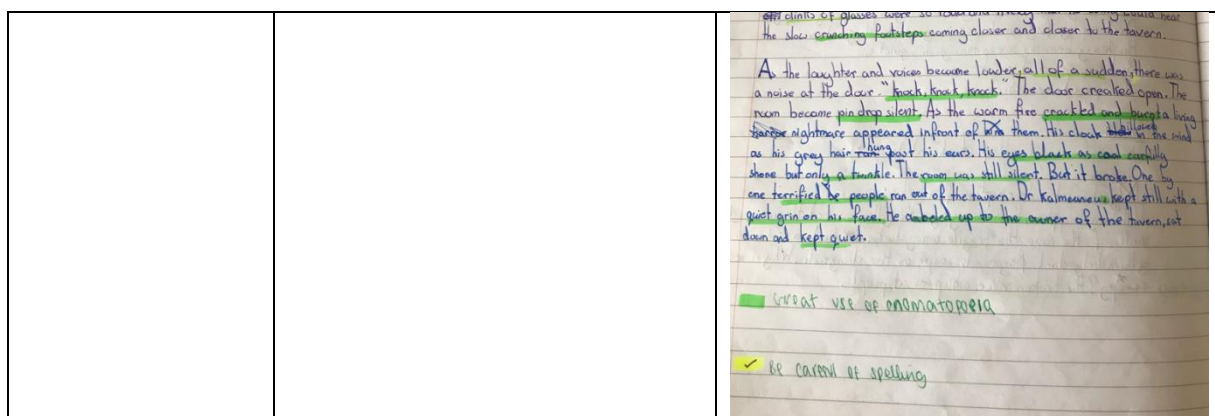 clinks of glasses were so loud and would hear
the slow crunching footsteps coming closer and closer to the tavern.
As the laughter and voices became louder, all of a sudden, there was
a noise at the door. "knock, knock, knock." The door creaked open. The
room became pin drop silent. As the warm fire crackled and burst a living
nightmare appeared infront of them. His cloak billowed in the wind
as his grey hair hung past his ears. His eyes black as coal
shone but only a twinkle. The room was still silent. But it broke. One by
one terrified people ran out of the tavern. Dr kept still with a
quiet grin on his face. He ambeled up to the owner of the tavern, sat
down and kept quiet.
Great use of onomatopoeia
✓ Be careful of spelling